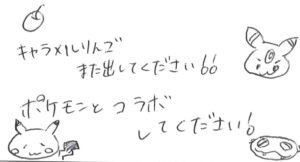 キャラメルりんご
また出してください!!
ポケモンと コラボ
してください!